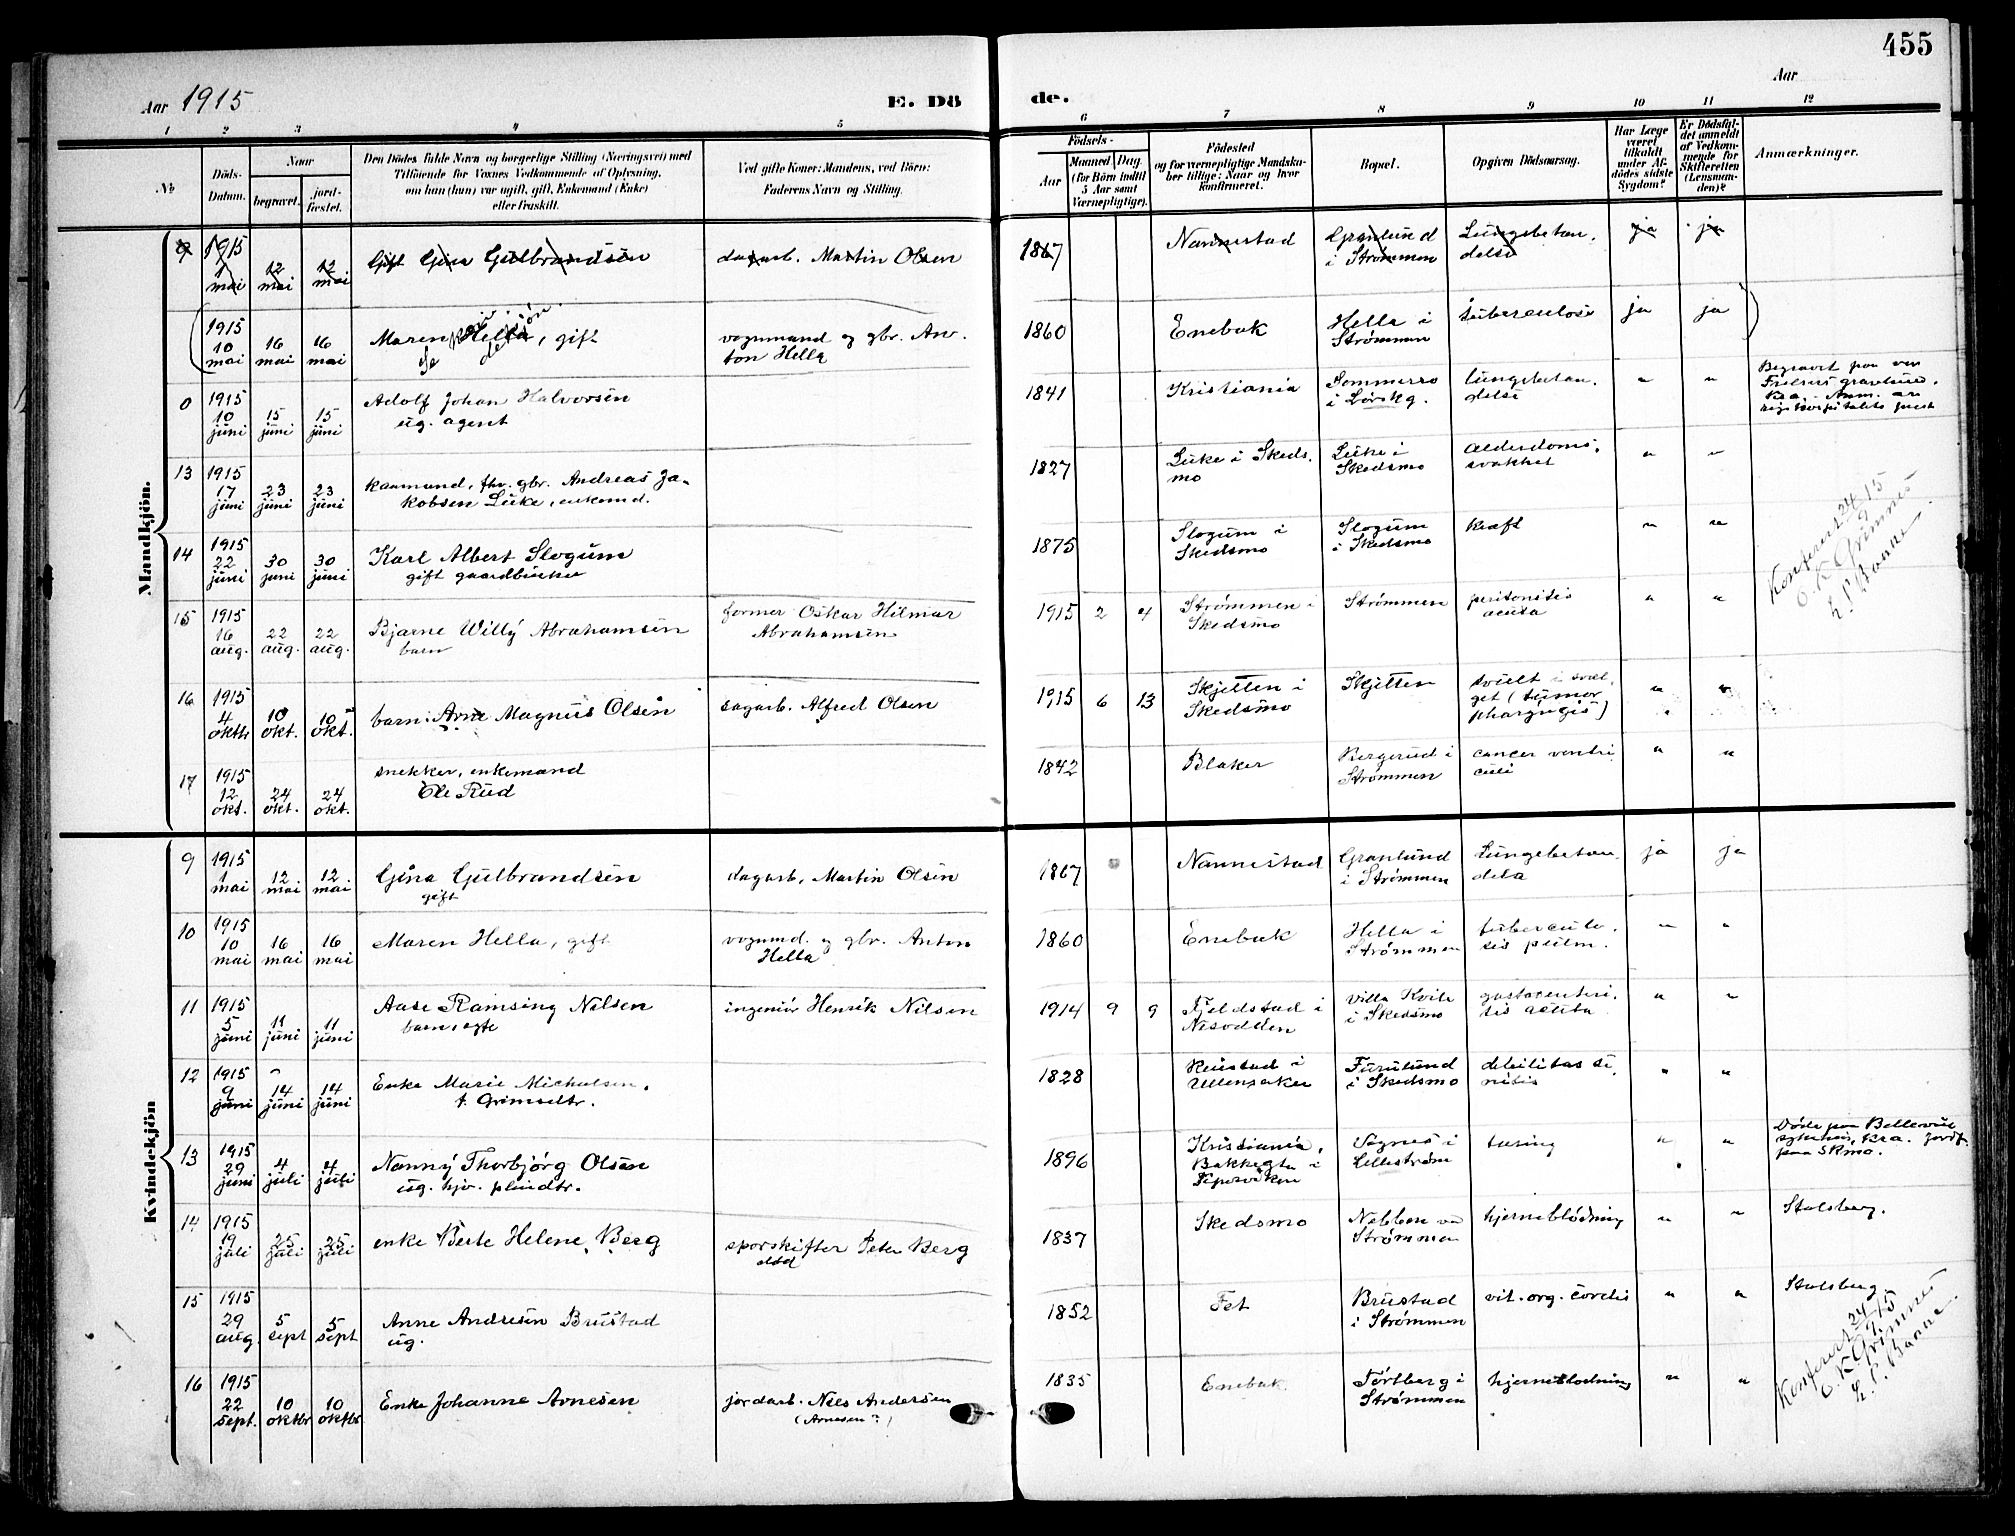 455
Aar 1915
E. Dö
de.
Aar
1 2 3 4 5 6 7 8 9 10 11 12
No
Döds-
Datum.
Naar
begravet.
jord-
fæstet.
Den Dödes fulde Navn og borgerlige Stilling (Næringsvei) med
Tilföiende for Voxnes Vedkommende af Oplysning,
om han (hun) var ugift, gift, Enkemand (Enke)
eller fraskilt.
Ved gifte Koner: Mandens, ved Börn:
Faderens Navn og Stilling.
Födsels-
Aar
Maaned Dag
(for Börn indtil
5 Aar samt
Værnepligtige).
Födested
og for værnepligtige Mandska-
ber tillige: Naar og hvor
konfirmeret.
Bopæl.
Opgiven Dödsaarsag.
Har Læge
været
tilkaldt
under Af-
dödes sidste
Sygdom?
Er Dödsfal-
det anmeldt
af Vedkom-
mende for
Skifteretten
(Lensman-
den)?
Anmærkninger.
Mandkjön.
9 1915 1 mai 12 mai 12 mai Gift Gina Gulbrandsen dagarb. Martin Olsen 1867 Nannestad Granlund i Strømmen Lungebetan. delse ja ja
1915 10 mai 16 mai 16 mai Maren Hella, gift vognmand og gbr. An. ton Hella 1860 Enebak Hella i Strømmen tuberculose ja ja
0 1915 10 juni 15 juni 15 juni Adolf Johan Halvorsen ug. agent 1841 Kristiania Sommerro i Lørskg. lungebetan. delse " " Begravet paa vor Frelsers gravlund. Kra. Anm. av rigshospitalets prest
13 1915 17 juni 23 juni 23 juni kaarmand, fhv. gbr. Andreas Ja- kobsen Luke, enkemd. 1827 Luke i Skeds. mo Luke i Skedsmo alderdoms. svakhet " "
14 1915 22 juni 30 juni 30 juni Karl Albert Slogum gift gaardbruker 1875 Slogum i Skedsmo Slogum i Skedsmo kræft " "
Konferert 24/9 15
E. K. Grimnes
L. S. Banne.
15 1915 16 aug. 22 aug. 22 aug. Bjarne Willy Abrahamsen barn former Oskar Hilmar Abrahamsen 1915 2 4 Strømmen i Skedsmo Strømmen peritonitis acuta " "
16 1915 4 oktb 10 okt. 10 okt. barn: Arne Magnus Olsen sagarb. Alfred Olsen 1915 6 13 Skjetten i Skedsmo Skjetten svulst i svæl. get (tumor pharyngis) " "
17 1915 12 okt. 24 okt. 24 okt. snekker, enkemand Ole Rud 1842 Blaker Bergerud i Strømmen cancer ventri culi " "
Kvindekjön
9 1915 1 mai 12 mai 12 mai Gina Gulbrandsen gift dagarb. Martin Olsen 1867 Nannestad Granlund i Strømmen Lungebetan. delse ja ja
10 1915 10 mai 16 mai 16 mai Maren Hella, gift vognmd. og gbr. Anton Hella 1860 Enebak Hella i Strømmen tuberculo. sis pulm. " "
11 1915 5 juni 11 juni 11 juni Aase Ramsing Nilsen barn, egte ingeniør Henrik Nilsen 1914 9 9 Fjeldstad i Nesodden Villa Kvile i Skedsmo gastroenteri. tis acuta " "
12 1915 9 juni 14 juni 14 juni Enke Marie Michelsen. f. Grimseltr. 1828 Reistad i Ullensaker Furulund i Skedsmo debilitas se. nilis " "
13 1915 29 juni 4 juli 4 juli Nanny Thorbjørg Olsen ug. hjv. pleiedtr. 1896 Kristiania, Bakkegtn i Pipervken Sagnes i Lillestrøm tæring " " Døde paa Bellevue sykehus, Kra. jordf. paa Skmo.
14 1915 19 juli 25 juli 25 juli enke Berte Helene Berg sporskifter Peter Berg 1837 Skedsmo Nebben ved Strømmen hjerneblødning " " Stalsberg.
15 1915 29 aug. 5 sept 5 sept Anne Andresen Brustad ug. 1852 Fet Brustad i Strømmen vit. org. cordis " " Stalsberg
Konferert 24/9 15
E. K. Grimnes
L. S. Banne.
16 1915 22 sept. 10 oktbr 10 oktbr Enke Johanne Arnesen jordarb. Nils Andersen (Arnesen?) 1835 Enebak Tortberg i Strømmen hjerneblødning " "